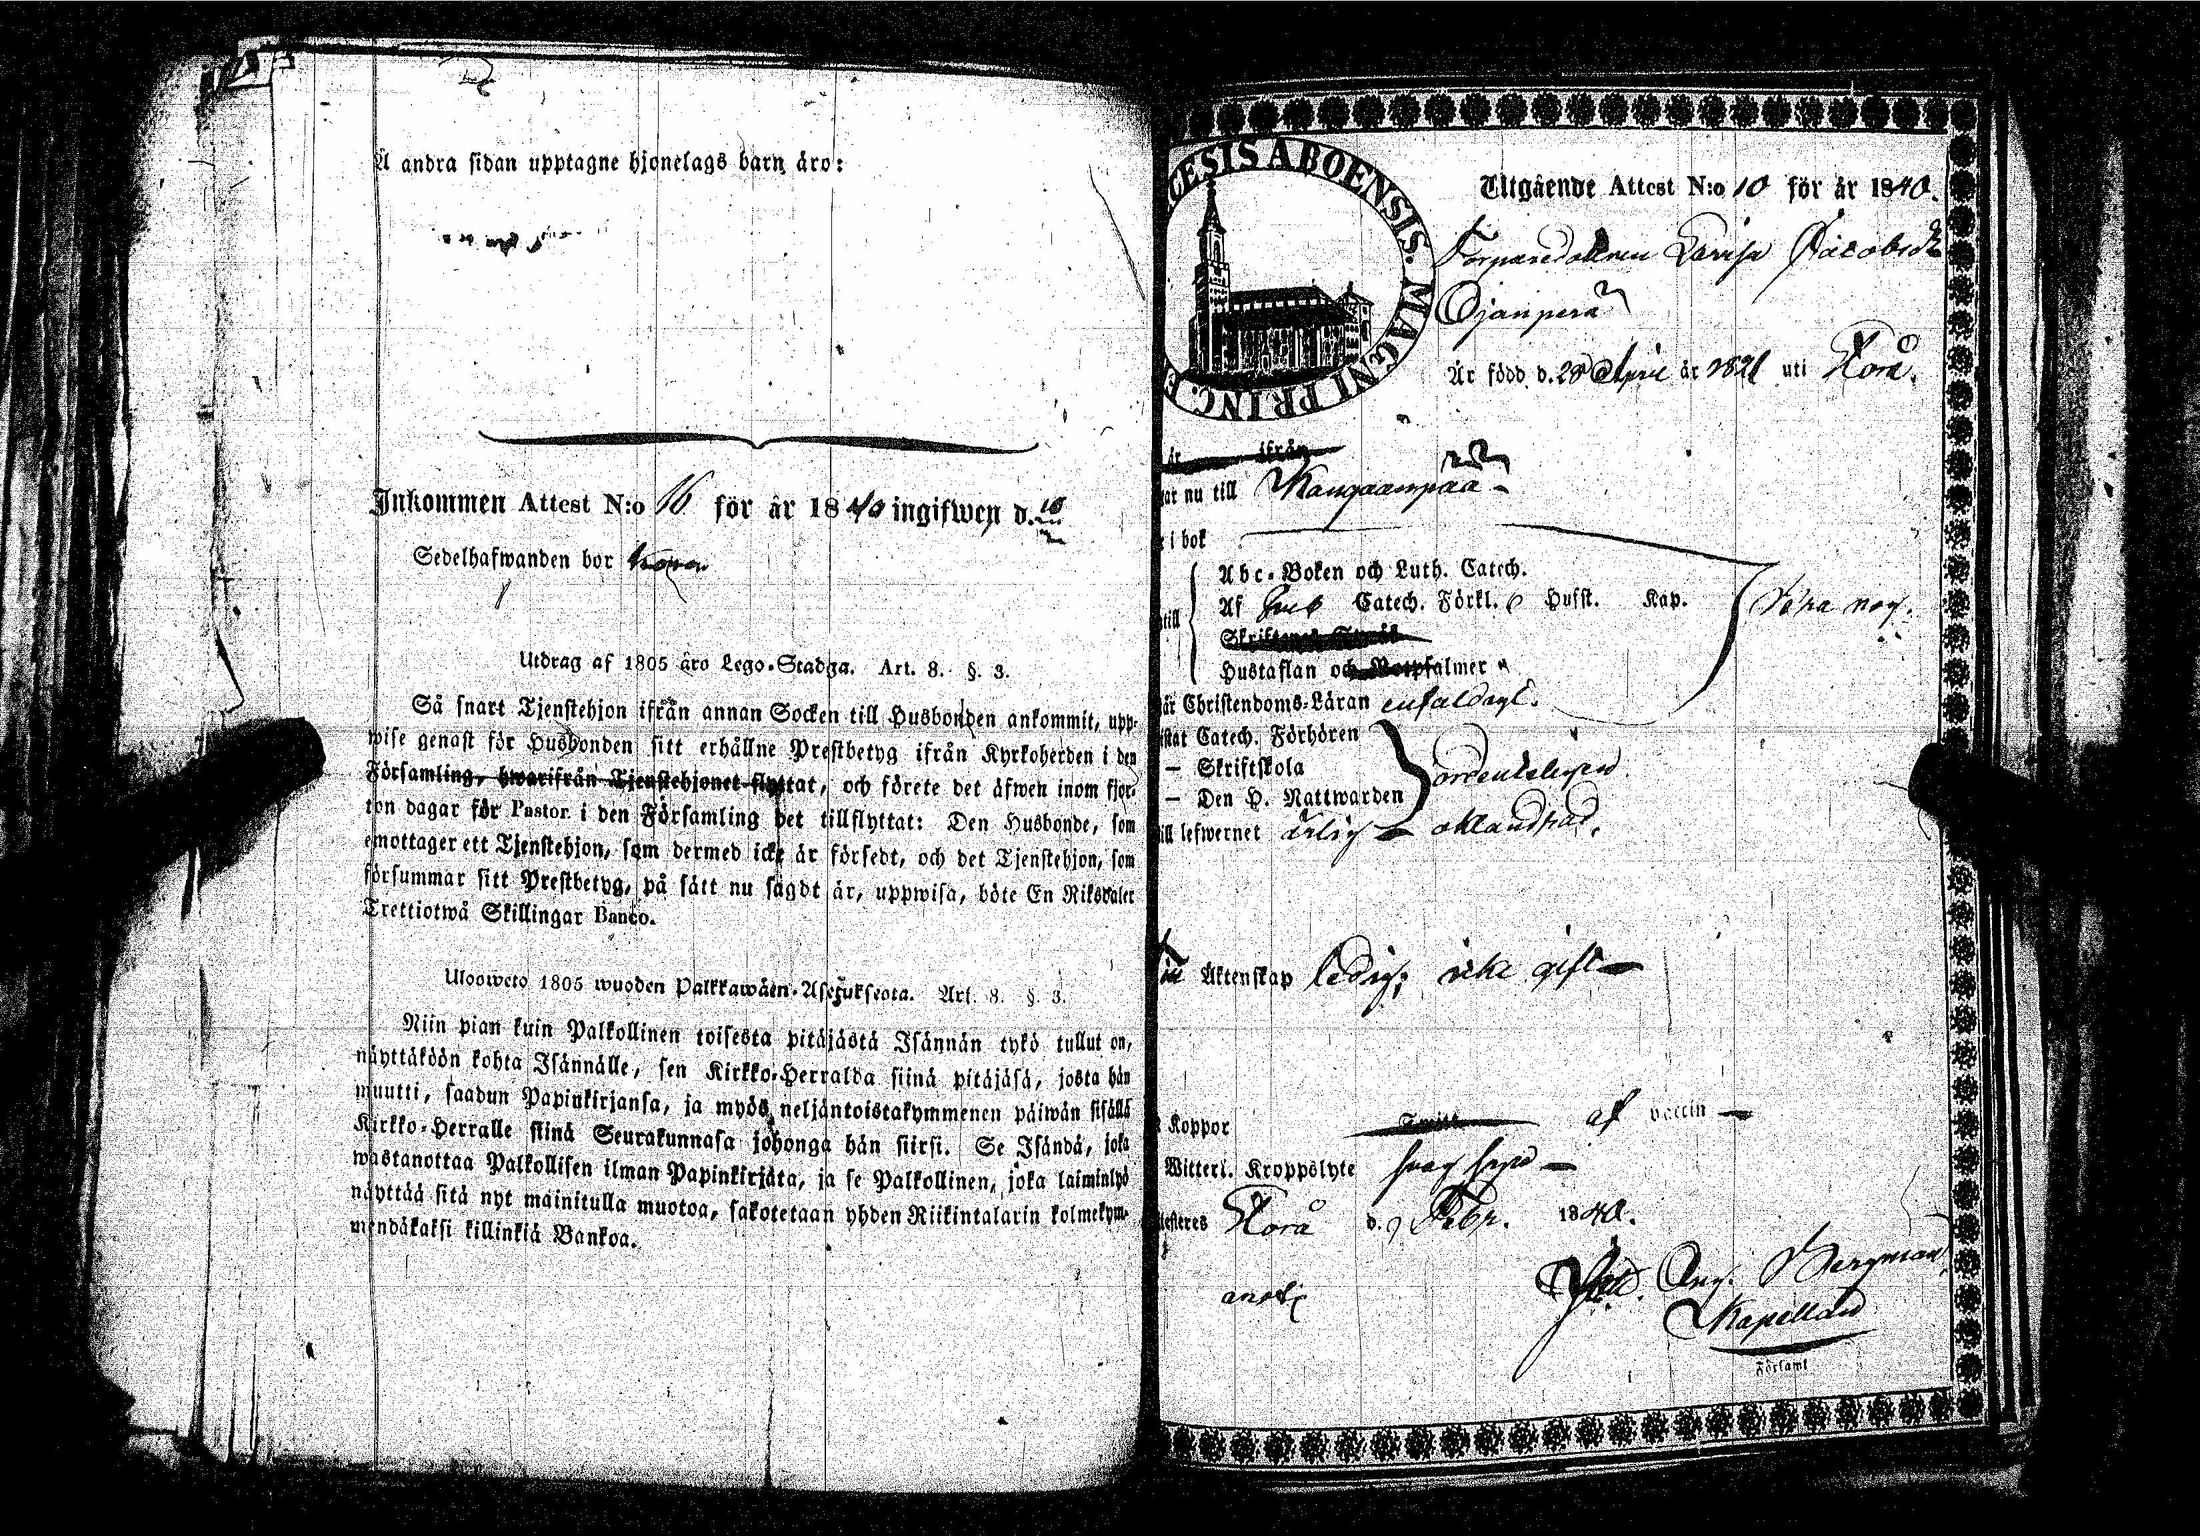 Å andra sidan upptagne hjonelags barn äro:
Inkommen Attest N:o 16 för år 1840 ingifwen d. 10
Sedelhafwanden bor
Utdrag af 1805 års Lego-Stadga. Art. 8. §. 3.
Så snart Tjenstehjon ifrån annan Socken till Husbonden ankommit, upp-
wise genast för Husbonden sitt erhållne Prestbetyg ifrån Kyrkoherden i den
Församling, hwarifrån Tjenstehjonet flyttat, och förete det äfwen inom fjor-
ton dagar för Pastor i den Församling det tillflyttat: Den Husbonde, som
emottager ett Tjenstehjon, som dermed icke är försedt, och det Tjenstehjon, som
försummar sitt Prestbetyg, på sätt nu sagdt är, uppwisa, böte En Riksdaler
Trettiotwå Skillingar Banco.
Ulosweto 1805 wuoden Palkkawäen-Asetuksesta. Art. 8. §. 3.
Niin pian kuin Palkollinen toisesta pitäjästä Isännän tykö tullut on,
näyttäköön kohta Isännälle, sen Kirkko-Herralda siinä pitäjäsä, josta hän
muutti, saadun Papinkirjansa, ja myös neljäntoistakymmenen päiwän sisällä
Kirkko-Herralle siinä Seurakunnasa johonga hän siirsi. Se Isändä, joka
wastanottaa Palkollisen ilman Papinkirjata, ja se Palkollinen, joka laiminlyö
näyttää sitä nyt mainitulla muotoa, sakotetaan yhden Riikintalarin kolmekym-
mendäkaksi killinkiä Bankoa.
ECESIS ABOENSIS. MAGNI PRINC. F
Utgående Attest N:o 10 för år 1840.
Torparedottren Lovisa Jacobsdr
Ojanperä
Är född d. 28 April år 1821 uti Norå.
är ifrån
ar nu till Kangaanpää
i bok
Abc-Boken och Luth. Catech.
Af Catech. Förkl. Husst. Kap.
till
Skriftenes Språk
Hustaflan och Botpsalmer
är Christendoms-Läran enfaldigt.
istat Catech. Förhören
— Skriftskola
— Den H. Nattwarden
ordenteligen
till lefwernet ärlig oklandrad.
Äktenskap ledig; icke gift
Koppor af vaccin
Witterl. Kroppslyte svag syn
testeres Norå d. 9 Febr. 1840.
Aug. Bergman
Kapellan
Församl